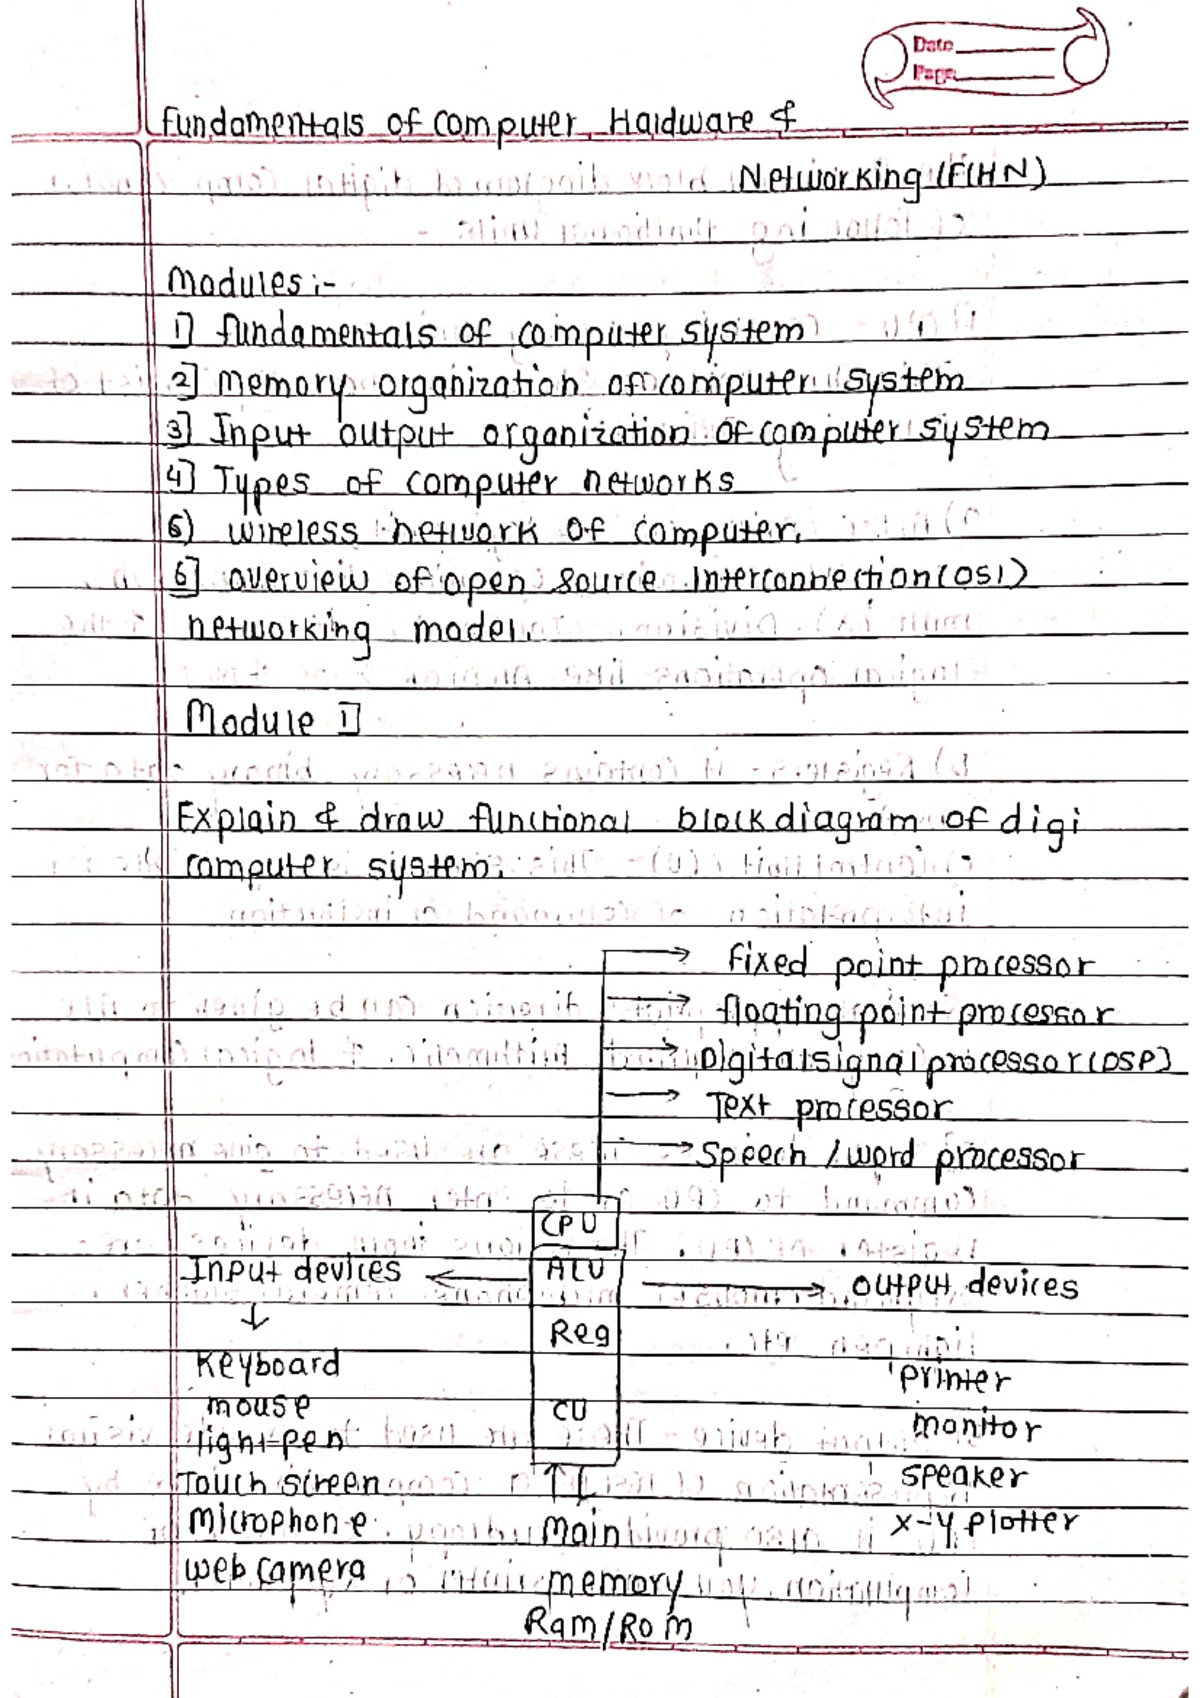 Date
Page
Fundamentals of computer Hardware &
Networking (FCHN)
Modules :-
1] fundamentals of computer system
2] Memory organization of computer system
3] Input output organization of computer system
4] Types of computer networks
5) wireless network of computer.
6] overview of open source Interconnection (OSI)
networking model.
Module 1]
Explain & draw functional block diagram of digi
computer system.
fixed point processor
floating point processor
Digital signal processor (DSP)
Text processor
speech / word processor
CPU
Input devices ALU output devices
Reg
Keyboard printer
mouse CU monitor
light pen
Touch screen speaker
Microphone Main x-y plotter
web camera memory
Ram/Rom